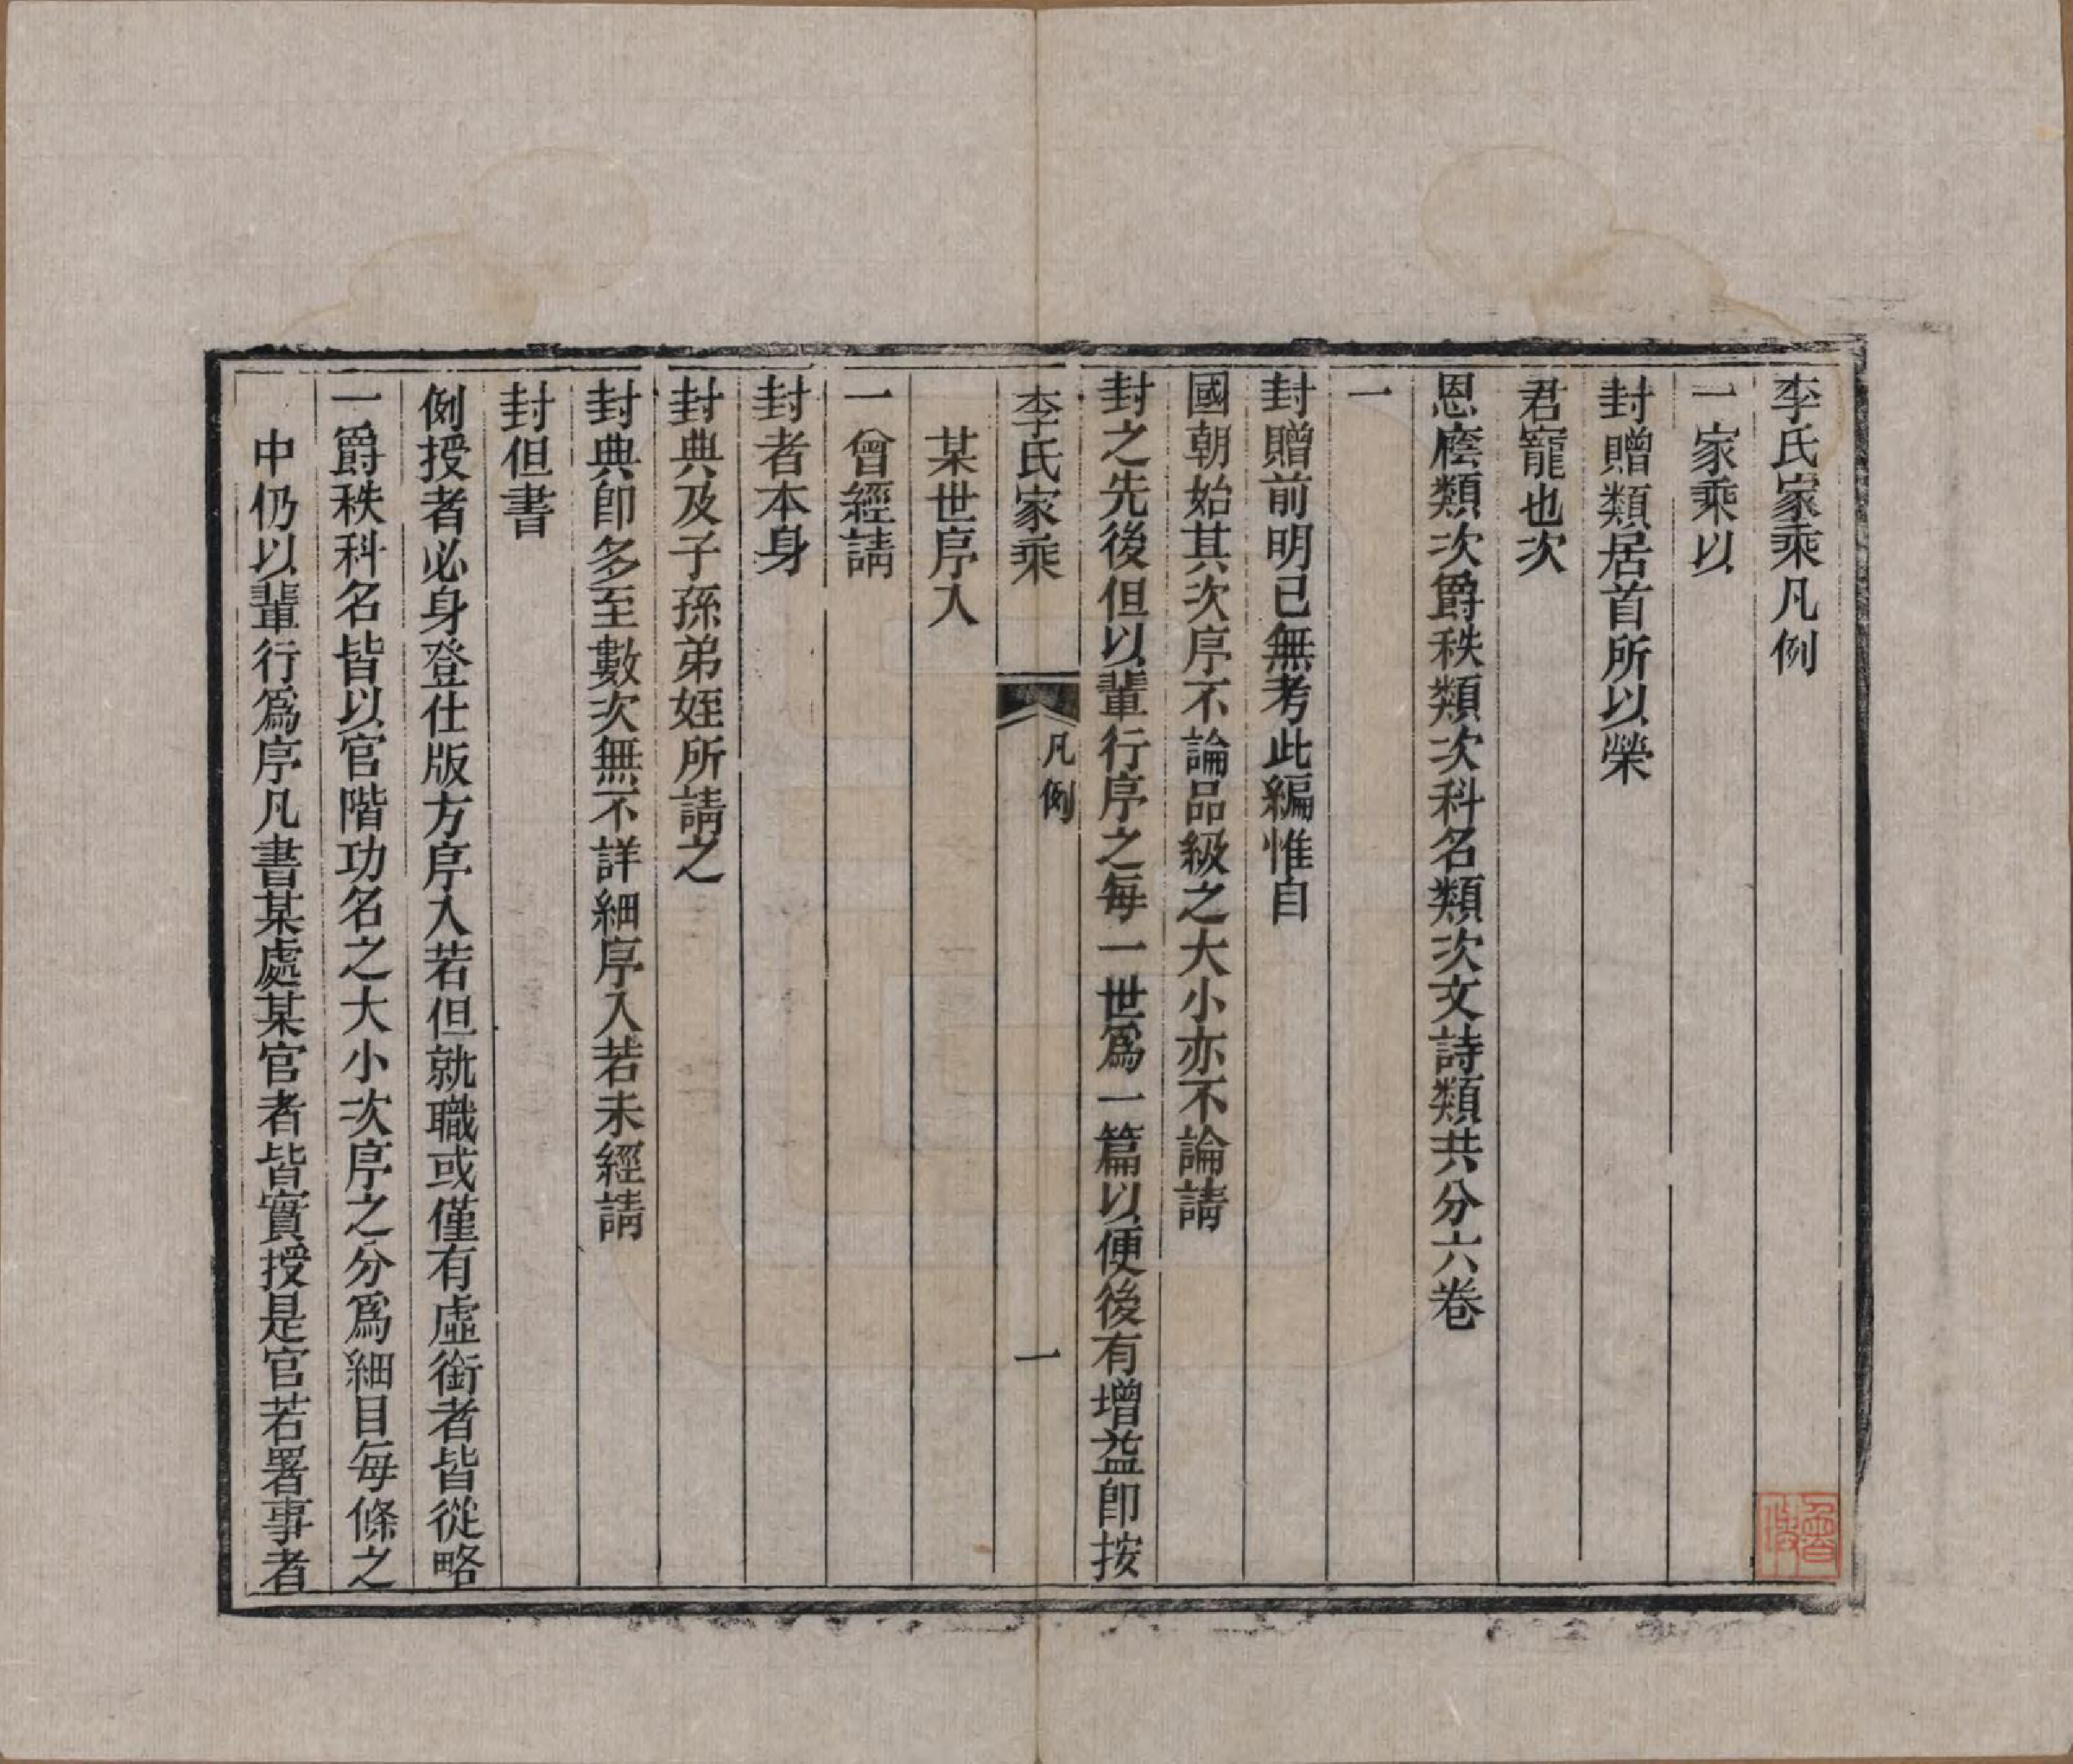 李氏家乘凡例
一家乘以
封贈類居首所以榮
君寵也次
恩廕類次爵秩類次科名類次文詩類共分六卷
一
封贈前明已無考此編惟自
國朝始其次序不論品級之大小亦不論請
封之先後但以輩行序之每一世爲一篇以便後有增益即按
李氏家乘
凡例
一
某世序入
一曾經請
封者本身
封典及子孫弟姪所請之
封典卽多至數次無不詳細序入若未經請
封但書
例授者必身登仕版方序入若但就職或僅有虛銜者皆從略
一爵秩科名皆以官階功名之大小次序之分爲細目每條之
中仍以輩行爲序凡書某處某官者皆實授是官若署事者